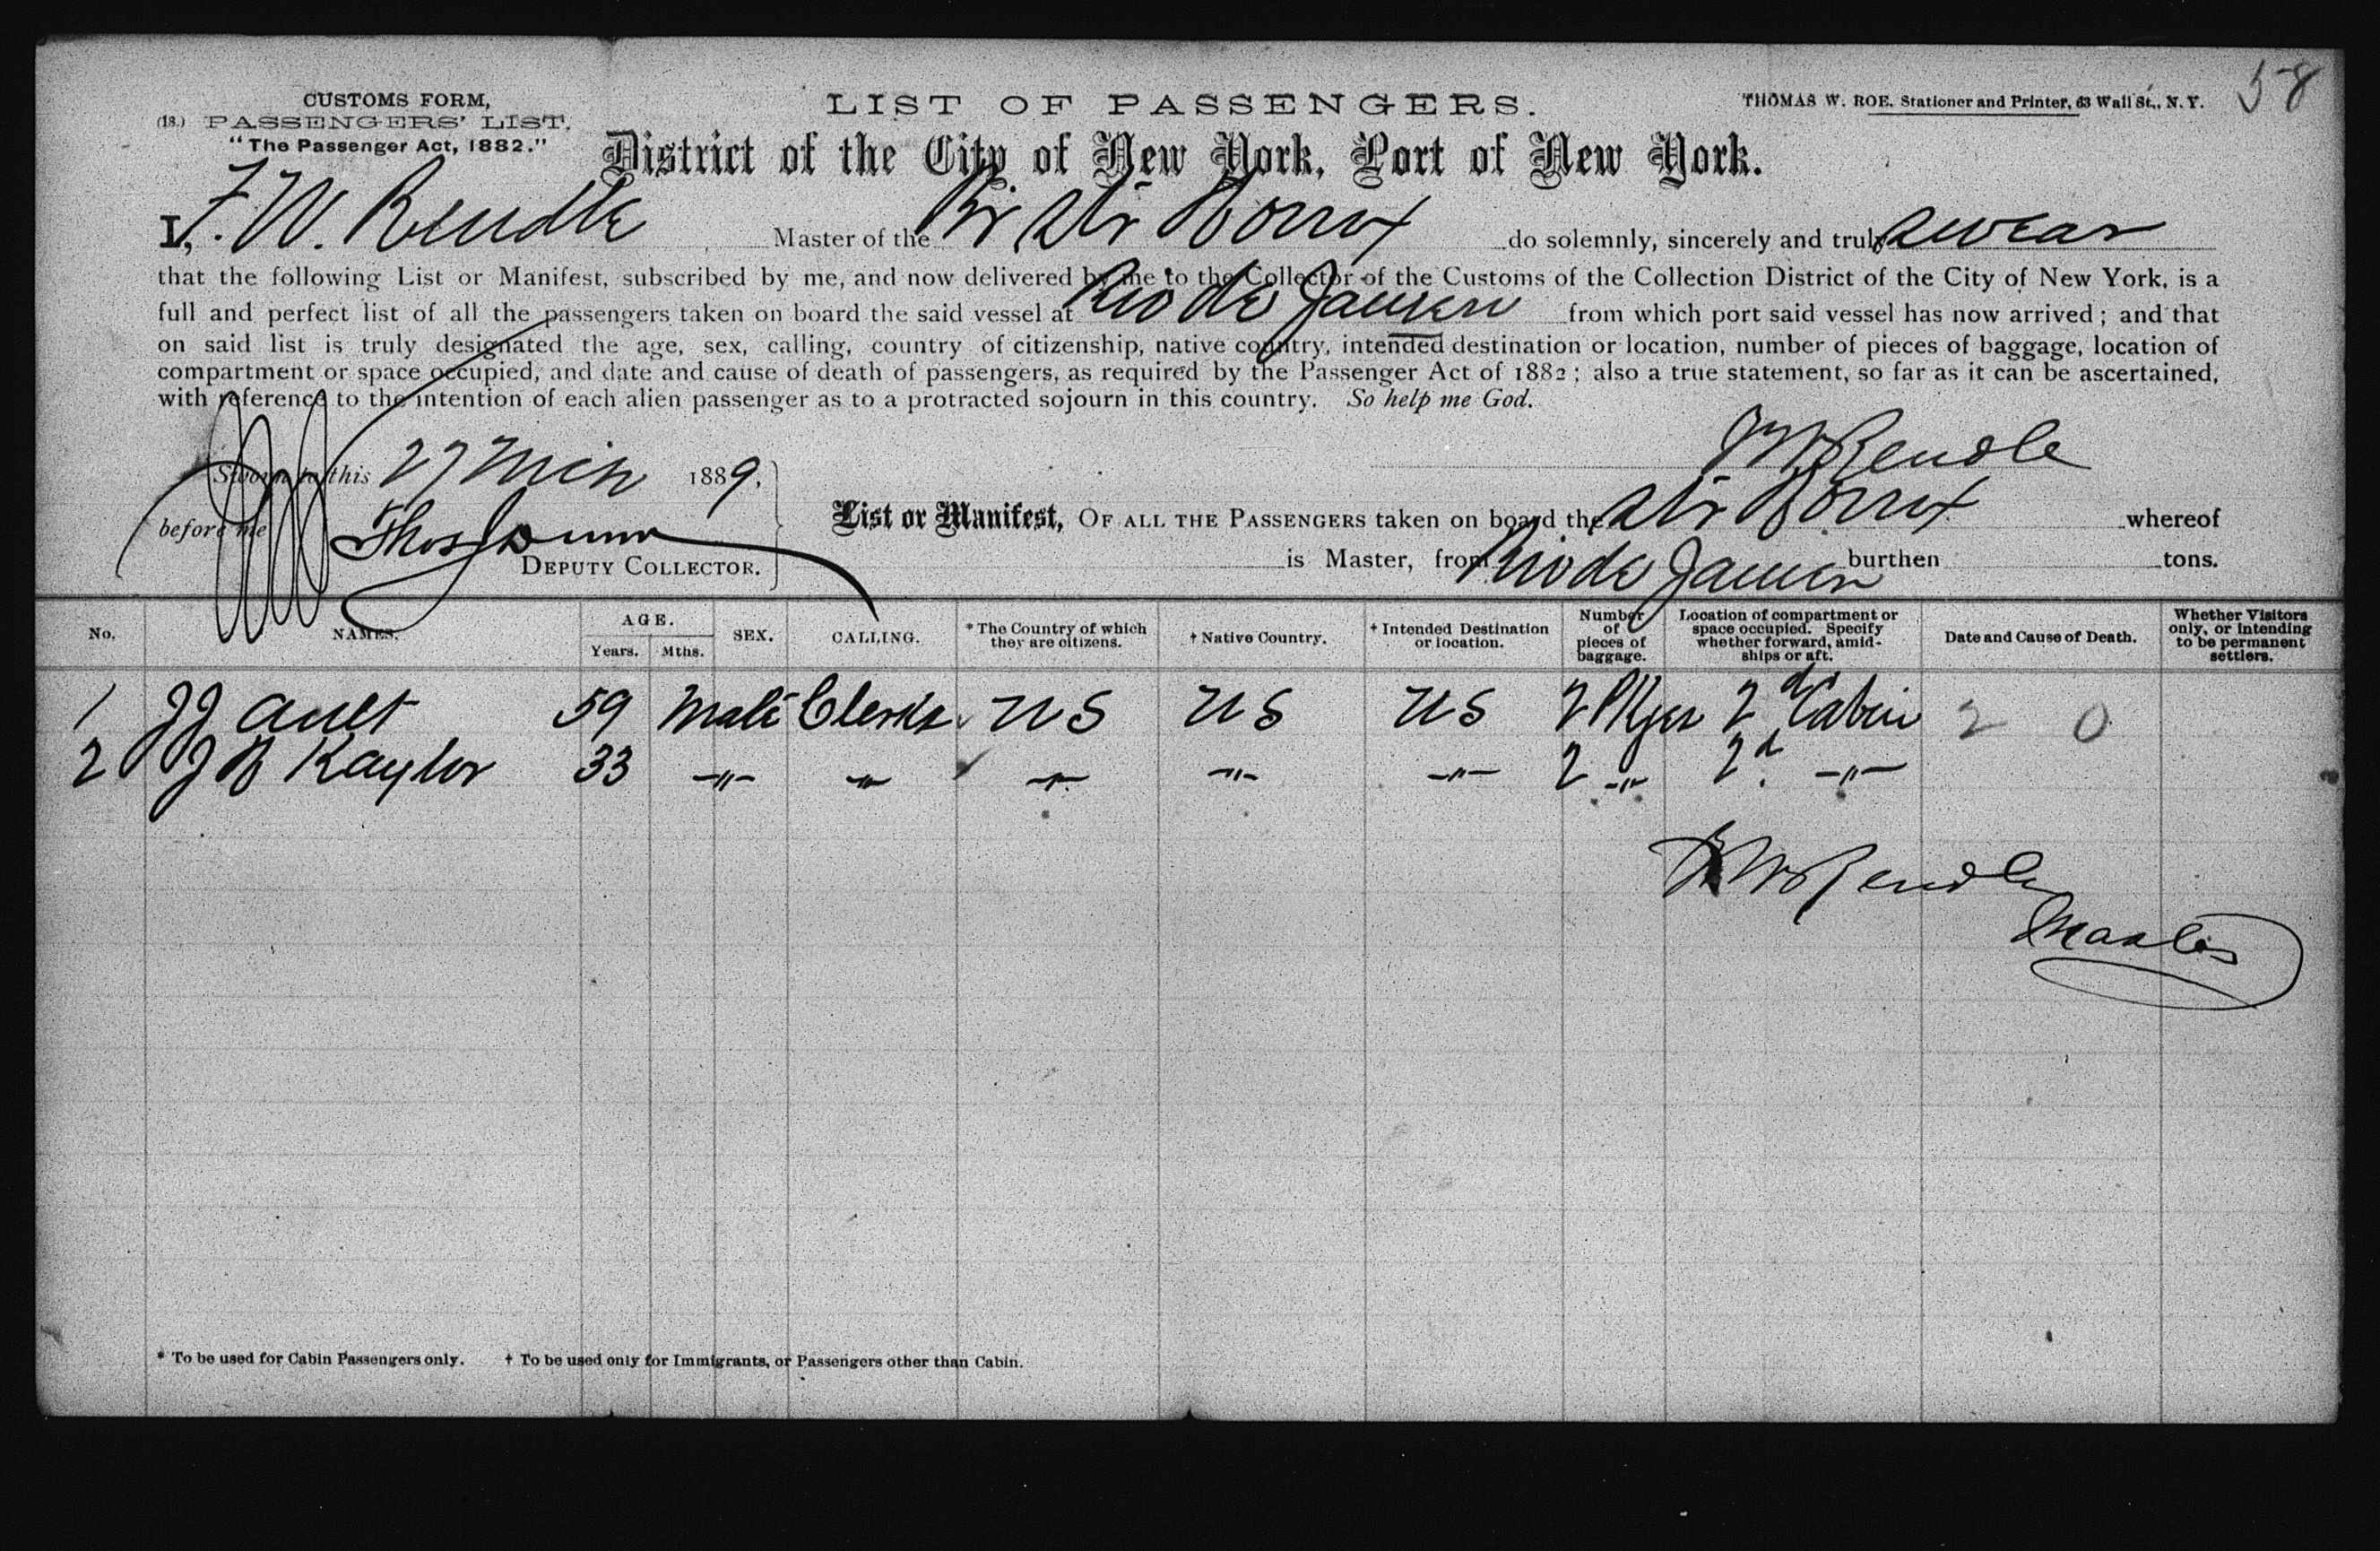 58
CUSTOMS FORM,
(18.) PASSENGERS' LIST.
"The Passenger Act, 1882."
LIST OF PASSENGERS.
THOMAS W. ROE, Stationer and Printer, 63 Wall St., N. Y.
District of the City of New York, Port of New York.
I, F. W. Rendle Master of the Br Str Borrox do solemnly, sincerely and truly swear
that the following List or Manifest, subscribed by me, and now delivered by me to the Collector of the Customs of the Collection District of the City of New York, is a
full and perfect list of all the passengers taken on board the said vessel at Rio de Janeiro from which port said vessel has now arrived; and that
on said list is truly designated the age, sex, calling, country of citizenship, native country, intended destination or location, number of pieces of baggage, location of
compartment or space occupied, and date and cause of death of passengers, as required by the Passenger Act of 1882; also a true statement, so far as it can be ascertained,
with reference to the intention of each alien passenger as to a protracted sojourn in this country. So help me God.
Sworn to this 27 Mch 1889,
before me Thos J Dunn
DEPUTY COLLECTOR.
F W Rendle
List or Manifest, OF ALL THE PASSENGERS taken on board the Str Borrox whereof
is Master, from Rio de Janeiro burthen tons.
No. NAMES. AGE. Years. Mths. SEX. CALLING. * The Country of which they are citizens. † Native Country. † Intended Destination or location. Number of pieces of baggage. Location of compartment or space occupied. Specify whether forward, amidships or aft. Date and Cause of Death. Whether Visitors only, or intending to be permanent settlers.
1 J J Ault 59 Male Clerks U S U S U S 2 Pkges 2d Cabin 2 0
2 J B Kaylor 33 -"- -"- -"- -"- -"- 2 -"- 2d. -"-
F W Rendle
Master
* To be used for Cabin Passengers only. † To be used only for Immigrants, or Passengers other than Cabin.